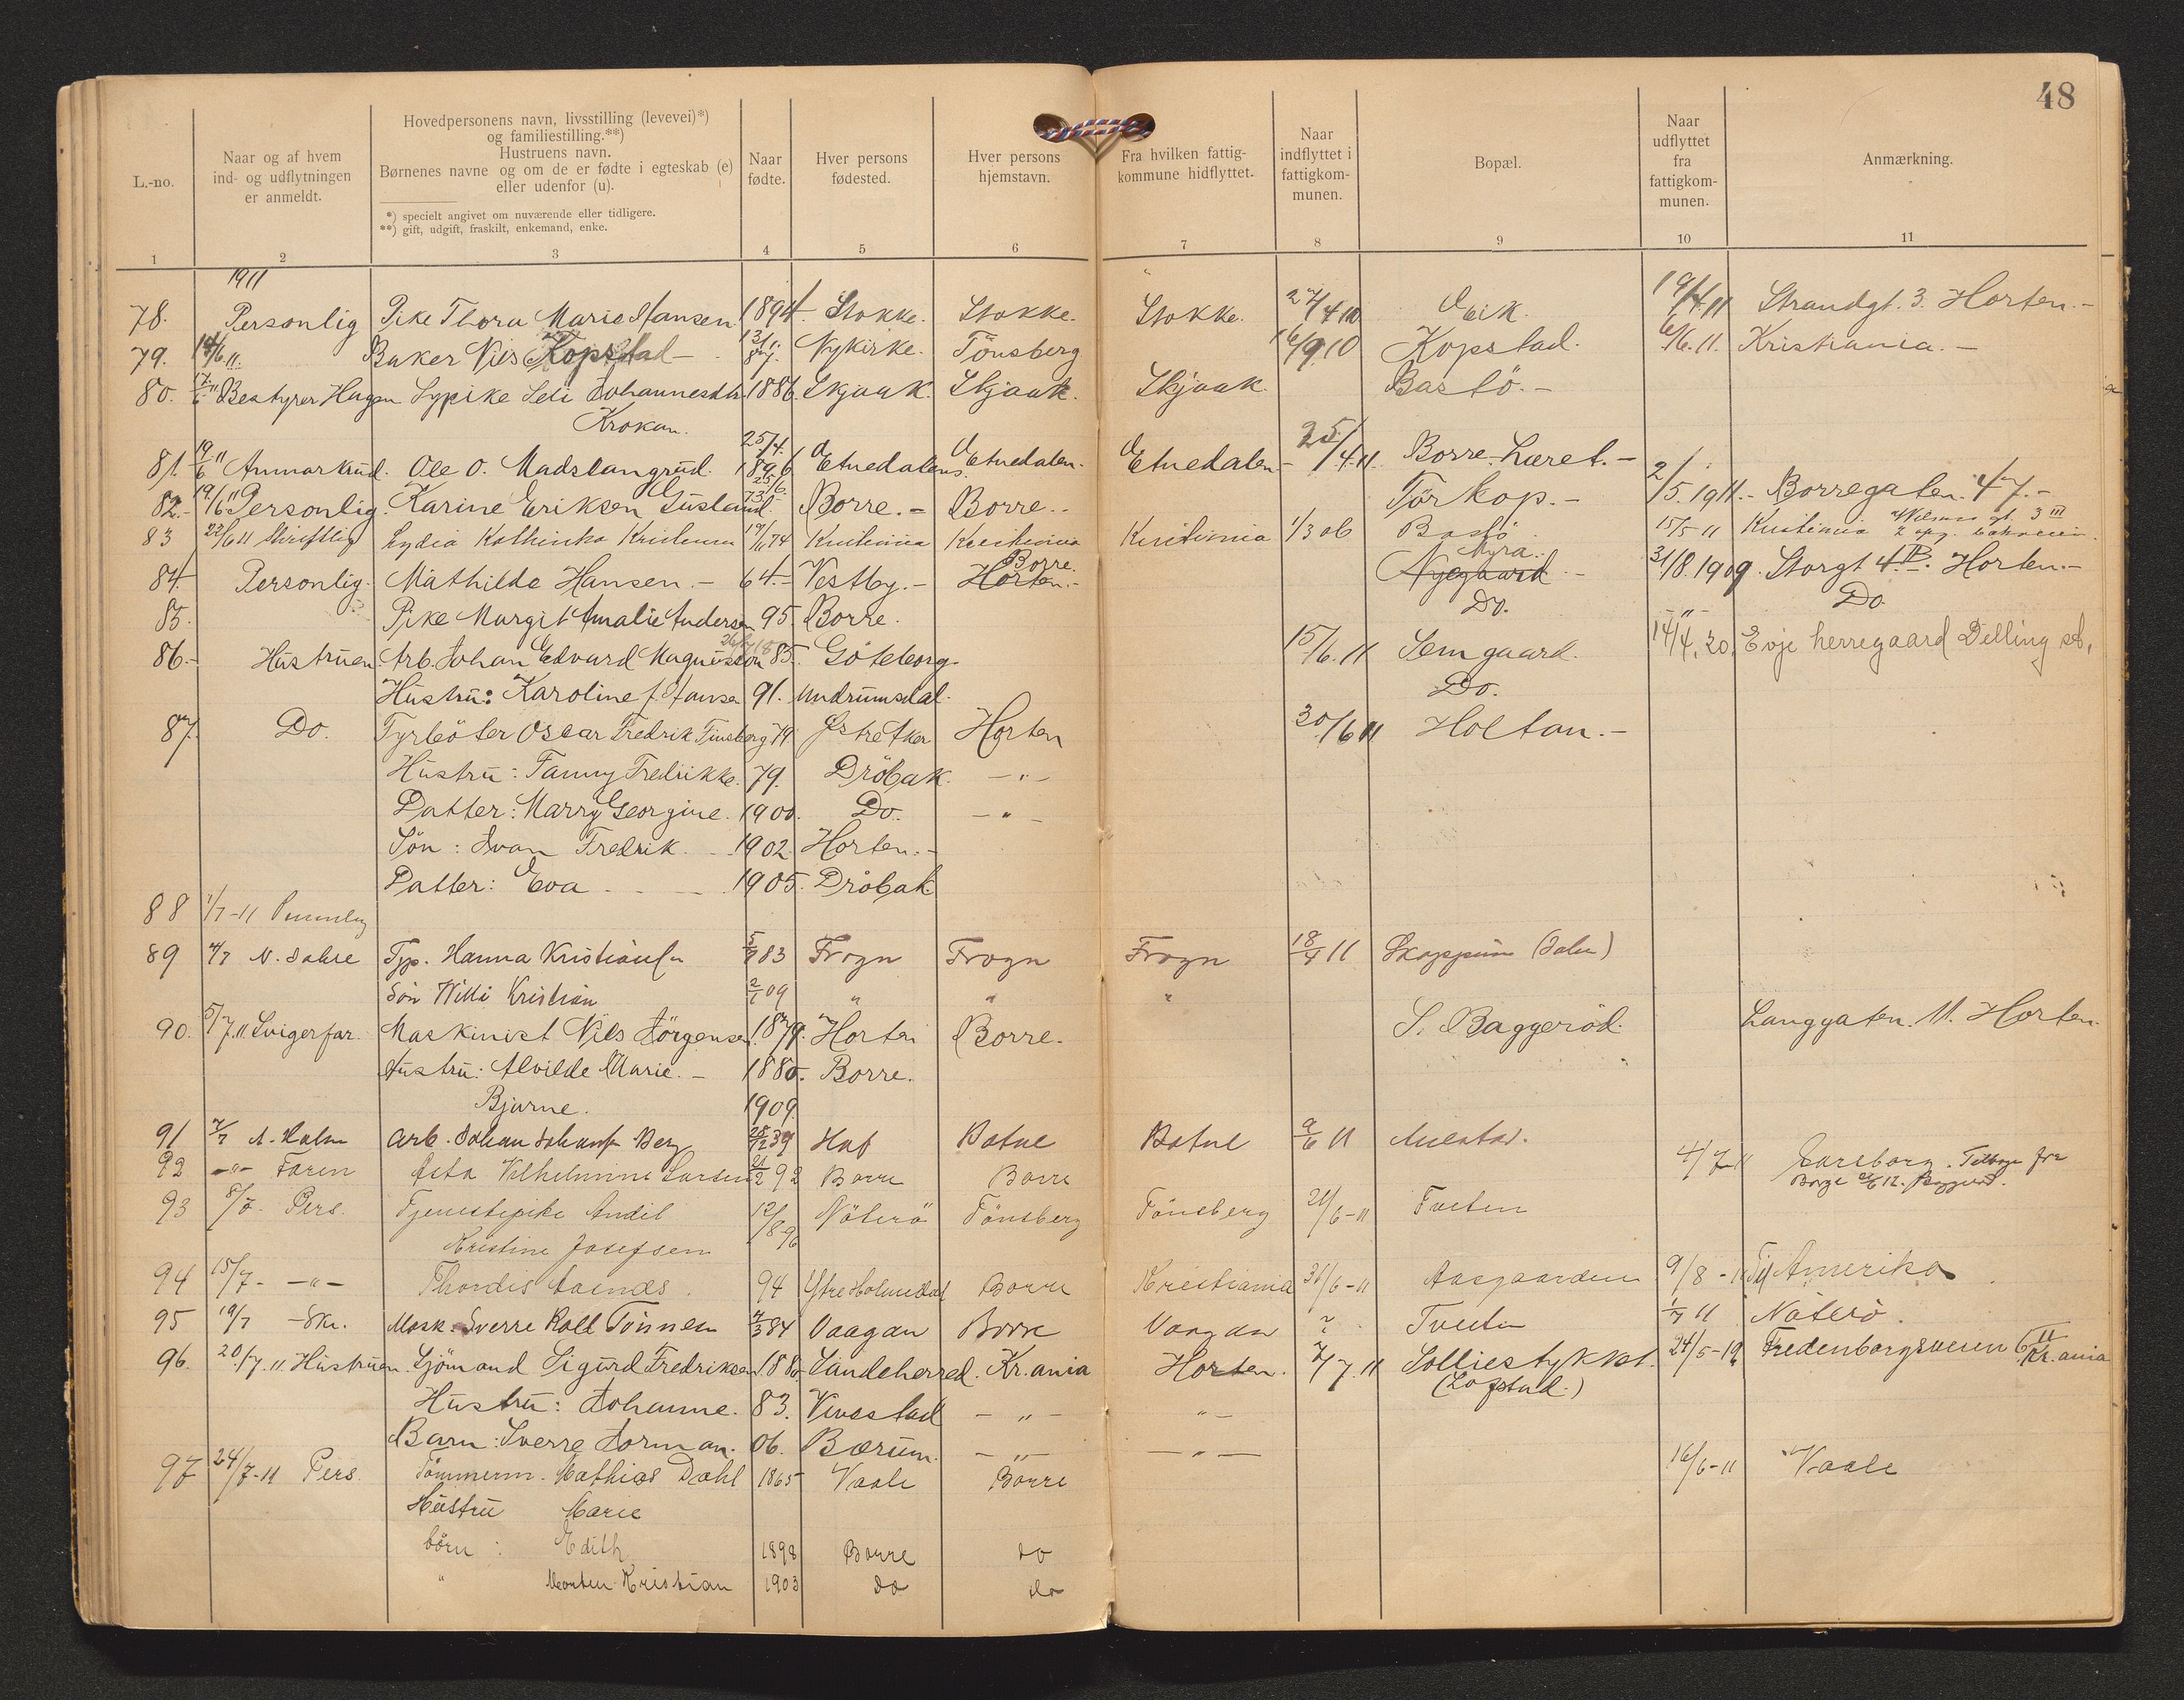 48
L.-no.
Naar og af hvem ind- og udflytningen er anmeldt.
Hovedpersonens navn, livsstilling (levevei)*) og familiestilling.**)
Hustruens navn.
Børnenes navne og om de er fødte i egteskab (e) eller udenfor (u).
*) specielt angivet om nuværende eller tidligere.
**) gift, udgift, fraskilt, enkemand, enke.
Naar fødte.
Hver persons fødested.
Hver persons hjemstavn.
Fra hvilken fattigkommune hidflyttet.
Naar indflyttet i fattigkommunen.
Bopæl.
Naar udflyttet fra fattigkommunen.
Anmærkning.
1 2 3 4 5 6 7 8 9 10 11
1911
78. Personlig Pike Thora Marie Hansen. 1894. Stokke. Stokke. Stokke. 27/4 10 Eik. 19/4 11 Strandgt. 3. Horten.-
79. 14/6 11. Baker Nils Kopstad - 87. Nykirke. Tönsberg 16/9 10 Kopstad. 6/6. 11. Kristiania.-
80. 17/6 11 Bestyrer Hagen Sypike Seli Johannesdtr. 1886. Skjaak. Skjaak. Skjaak. Bastö.-
Krokan.
81. 19/6 11 Ole O. Madslangrud. 25/4. 1896 Etnedalens Etnedalen. Etnedalen- 25/4. 11. Borre-Læret.-
82.- 19/6 11 Personlig. Karine Eriksen Gusland. 25/6. 73. Borre.- Borre.- Törkop.- 2/5. 1911.- Borregaten. 47.-
83 22/6 11 Skriftlig Lydia Kathinka Kristensen 19/11 74 Kristiania Kristiania Kristiania 1/3 06 Bastö 15/5 11 Kristiania gt. 3 III
84. Personlig. Mathilde Hansen.- 64.- Vestby.- Horten.- Borre. Nygaard Myra.- 31/8. 1909. Storgt 4 B. Horten.-
85. Pike Margit Amalie Andersen 95. Borre. Do. -"- Do
86.- Hustruen. Arb. Johan Edvard Magnusson 85. Göteborg. 15/6. 11 Semgaard. 14/4. 20. Evje herregaard Dilling st,
Hustru: Karoline f. Hansen 91. Undrumsdal. Do.
87. Do. Fyrböter Oscar Fredrik Tinsberg 79. Östre Aker Horten 30/6 11 Holtan.-
Hustru: Fanny Fredrikke. 79. Dröbak. -"-
Datter: Marry Georgine. 1900. Do. -"-
Sön: Ivan Fredrik. 1902. Horten.-
Datter: Eva 1905. Dröbak
88 1/7-11 Personlig
89 4/7 Tjp. Hanna Kristiansen 83 Frogn Frogn Frogn 18/4 11 Skoppum
Sön Willi Kristian 09 " " "
90. 5/7. 11 Svigerfar. Maskinist Nils Jörgensen. 1879. Horten Borre. S. Baggeröd. Langgaten. 11. Horten.
Hustru: Alvilde Marie.- 1880. Borre.
Bjarne. 1909.
91 7/7 A. Holm Arb. Johan Johansen Berg 39 Botne Botne 9/6 11
92 -"- Faren Asta Vilhelmine Larsen 92 Borre Borre 4/7-11 Jarlsberg. Tilbage fra
93 8/7. Pers. Tjenestepike Andil 12/8 96 Nöterö Tönsberg Tönsberg 21/6-11 Tveten
Kristine Josefsen
94 15/7- -"- Thordis 94 Ytre Holmedal Borre Kristiania 31/6-11 Aasgaarden 9/8-11 Til Amerika
95 19/7 -Skr. Mask. Sverre Roll Tönnesen 84 Vaagan Borre Vaagan ? Tveten 1/7 11 Nöterö.
96. 20/7. 11 Hustruen. Sjömand Sigurd Fredriksen 1880. Sandeherred. Kr.ania Horten. 7/7. 11 Solliestykket. 24/5-19 Fredenborgveien 6 II Kr.ania
(Lofstad.)
Hustru: Johanne. 83. Vivestad -"- "-
Barn: Sverre Jorman. 06. Bærum. -"- -"-
97 24/7-11 Pers. Tömmerm. Mathias Dahl 1865 Vaale Borre 16/6-11 Vaale
Hustru Marie
börn: Edith 1898 Borre do
" Morten Kristian 1903 do do